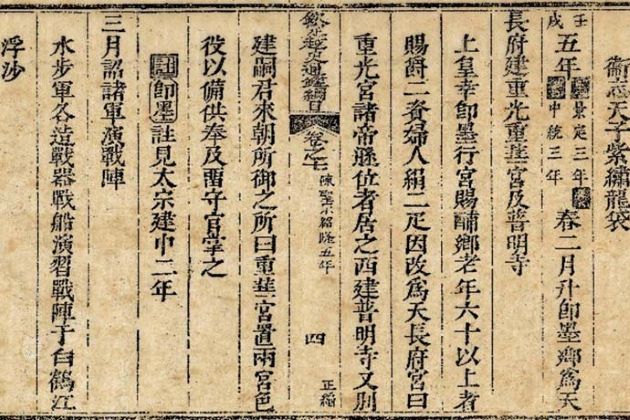 衞志天子紫繡龍袋
壬戌五年宋景定三年元中統三年春二月升卽墨鄉爲天
長府建重光重華宮及普明寺
上皇幸卽墨行宮賜酺鄉老年六十以上者
賜爵二資婦人絹二疋因改爲天長府宮曰
重光宮諸帝遜位者居之西建普明寺又別
欽定越史通鑑綱目 卷之七 陳聖宗紹隆五年 四 正編
建嗣君來朝所御之所曰重華宮置兩宮色
役以備供奉及畱守官掌之
註卽墨註見太宗建中二年
三月詔諸軍演戰陣
水步軍各造戰器戰船演習戰陣于白鶴江
浮沙